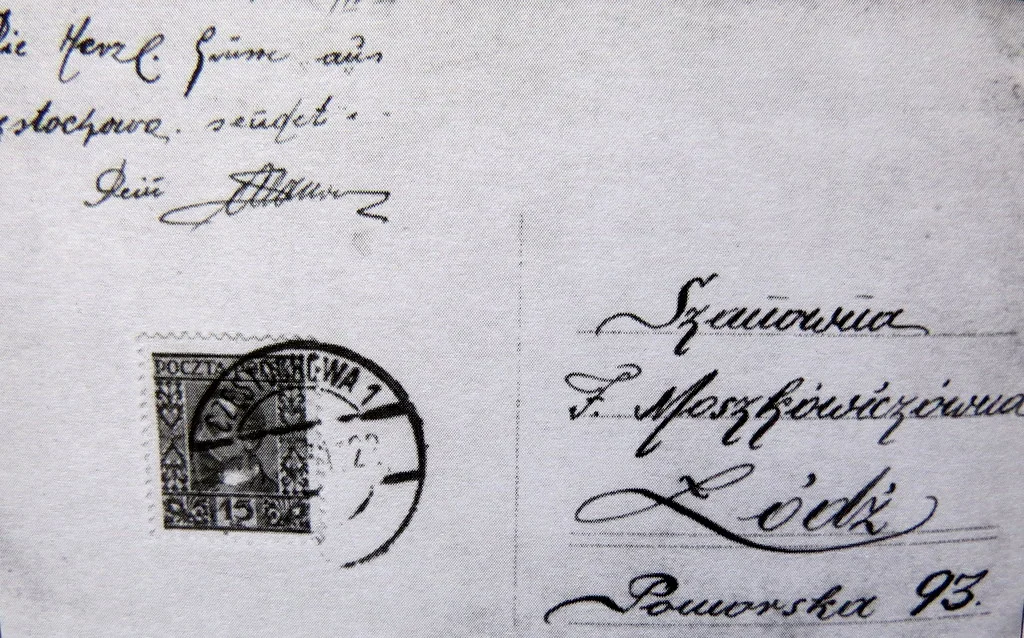 Die Herzl. Grüsse aus
stochowa. sendet
Dein
POCZTA
CZĘSTOCHOWA 1
15
Szanowna
F. Moszkowiczówna
Łódź
Pomorska 93.